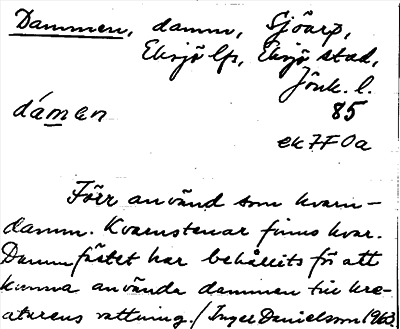 Dammen, damm, Sjöarp,
Eksjö lfs, Eksjö stad,
Jönk. l.
85
dámen
ek 7F 0a
Förr använd som kvarn-
damm. Kvarnstenar finns kvar.
Dammfästet har behållits för att
kunna använda dammen till kre-
aturens vattning. / Ingel Danielsson 1963